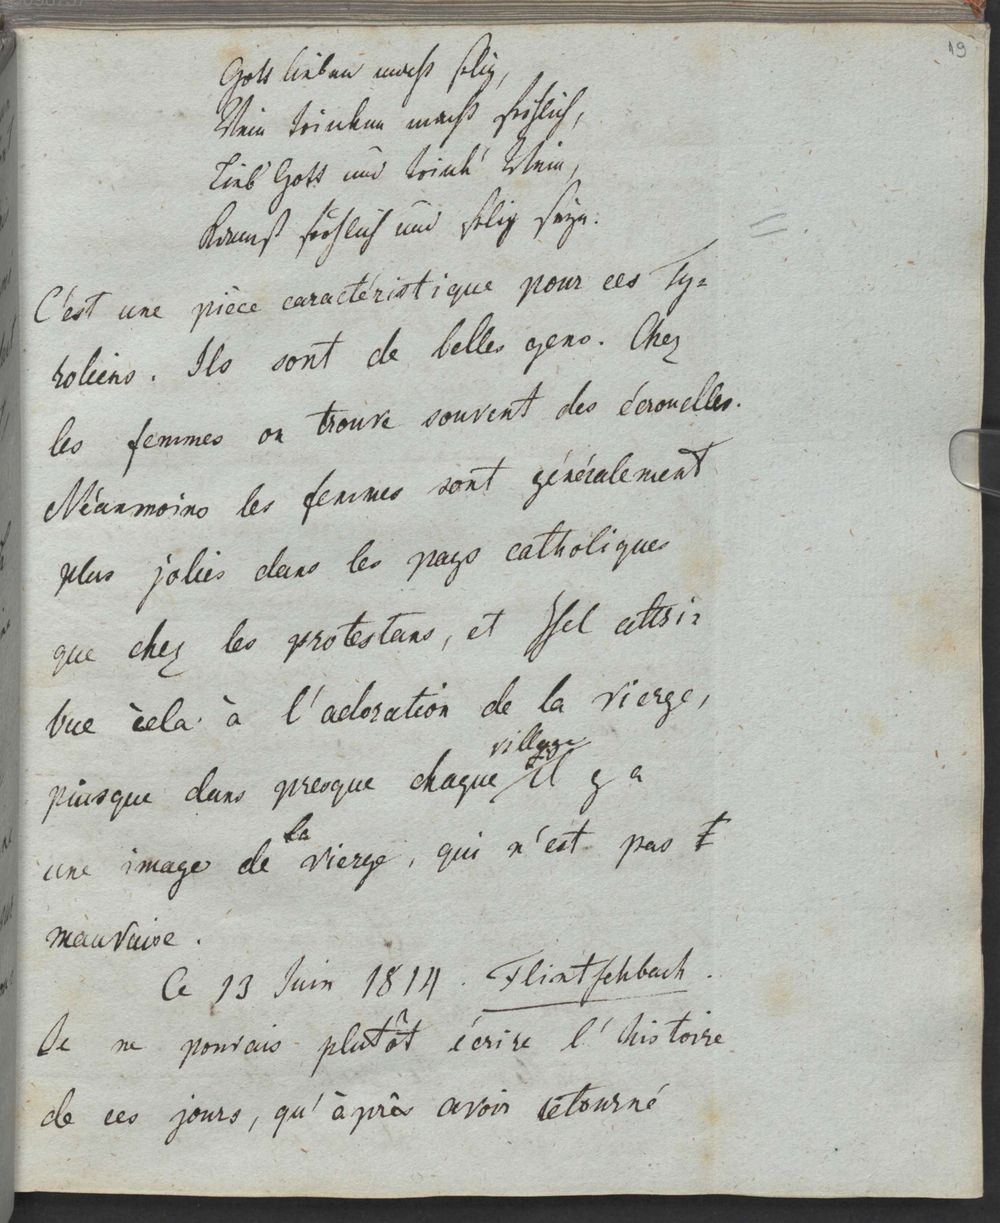 19
Gott lieben macht selig,
Wein trinken macht fröhlich,
Lieb' Gott und trink' Wein,
Kannst fröhlich und selig seyn.
C'est une pièce caractéristique pour ces Ty=
roliens. Ils sont de belles gens. Chez
les femmes on trouve souvent des écrouelles.
Néanmoins les femmes sont généralement
plus jolies dans les pays catholiques
que chez les protestans, et attri=
bue cela à l'adoration de la vierge,
puisque dans presque chaque village il y a
une image de la vierge, qui n'est pas
mauvaise.
Ce 13 Juin 1814. Flintschbach.
Je ne pouvais plutôt écrire l'histoire
de ces jours, qu'après avoir retourné